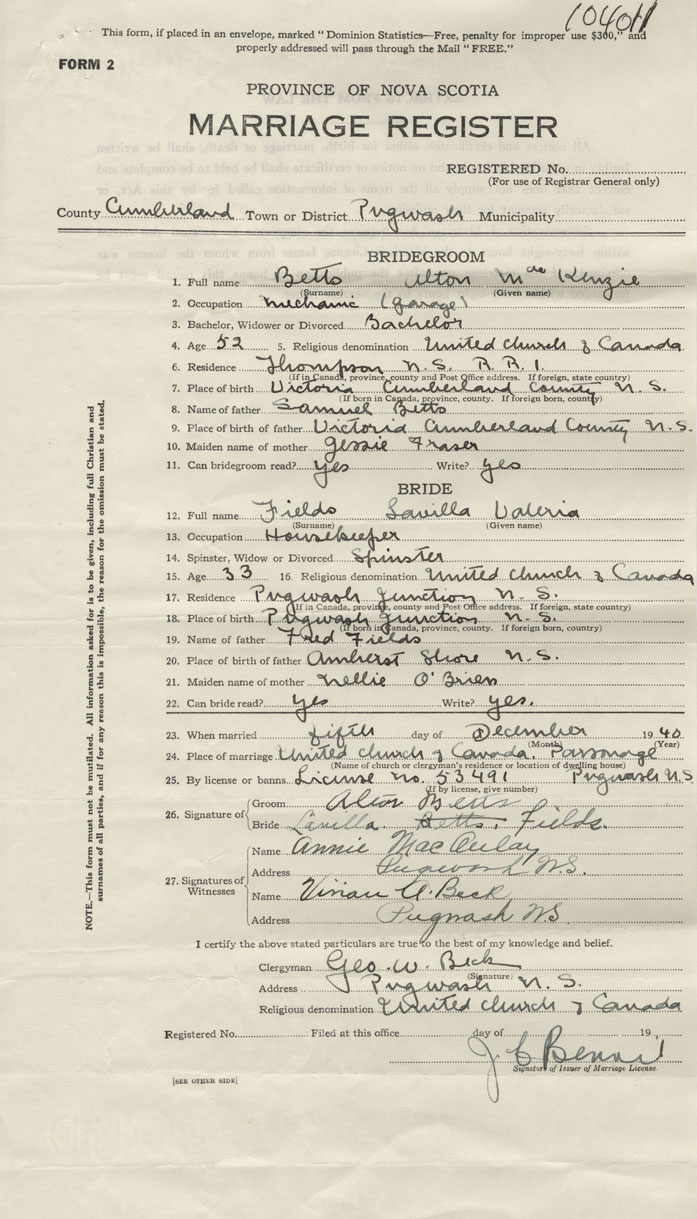 104011
This form, if placed in an envelope, marked "Dominion Statistics—Free, penalty for improper use $300," and
properly addressed will pass through the Mail "FREE."
FORM 2
PROVINCE OF NOVA SCOTIA
MARRIAGE REGISTER
REGISTERED No.
(For use of Registrar General only)
County Cumberland Town or District Pugwash Municipality
BRIDEGROOM
1. Full name Betts Alton Mac Kenzie
(Surname) (Given name)
2. Occupation Mechanic (garage)
3. Bachelor, Widower or Divorced Bachelor
4. Age 52 5. Religious denomination United Church of Canada
6. Residence Thompson N.S. R.R.1.
(If in Canada, province, county and Post Office address. If foreign, state country)
7. Place of birth Victoria Cumberland County N.S.
(If born in Canada, province, county. If foreign born, country)
8. Name of father Samuel Betts
9. Place of birth of father Victoria Cumberland County N.S.
10. Maiden name of mother Jessie Fraser
11. Can bridegroom read? yes Write? yes
BRIDE
12. Full name Fields Lavilla Valeria
(Surname) (Given name)
13. Occupation Housekeeper
14. Spinster, Widow or Divorced Spinster
15. Age 33 16. Religious denomination United Church of Canada
17. Residence Pugwash Junction N.S.
(If in Canada, province, county and Post Office address. If foreign, state country)
18. Place of birth Pugwash Junction N.S.
(If born in Canada, province, county. If foreign born, country)
19. Name of father Fred Fields
20. Place of birth of father Amherst Shore N.S.
21. Maiden name of mother Nellie O'Brien
22. Can bride read? yes Write? yes.
23. When married fifth day of December 1940
(Month) (Year)
24. Place of marriage United Church of Canada, Parsonage
(Name of church or clergyman's residence or location of dwelling house)
25. By license or banns License no. 53491 Pugwash N.S.
(If by license, give number)
26. Signature of
Groom Alton Betts
Bride Lavilla Betts. Fields.
27. Signatures of Witnesses
Name Annie MacAulay
Address Pugwash N.S.
Name Vivian A. Beck
Address Pugwash NS
I certify the above stated particulars are true to the best of my knowledge and belief.
Clergyman Geo. W. Beck
(Signature)
Address Pugwash N.S.
Religious denomination United Church of Canada
Registered No. Filed at this office day of 19
Signature of Issuer of Marriage License
[SEE OTHER SIDE]
NOTE.—This form must not be mutilated. All information asked for is to be given, including full Christian and
surnames of all parties, and if for any reason this is impossible, the reason for the omission must be stated.